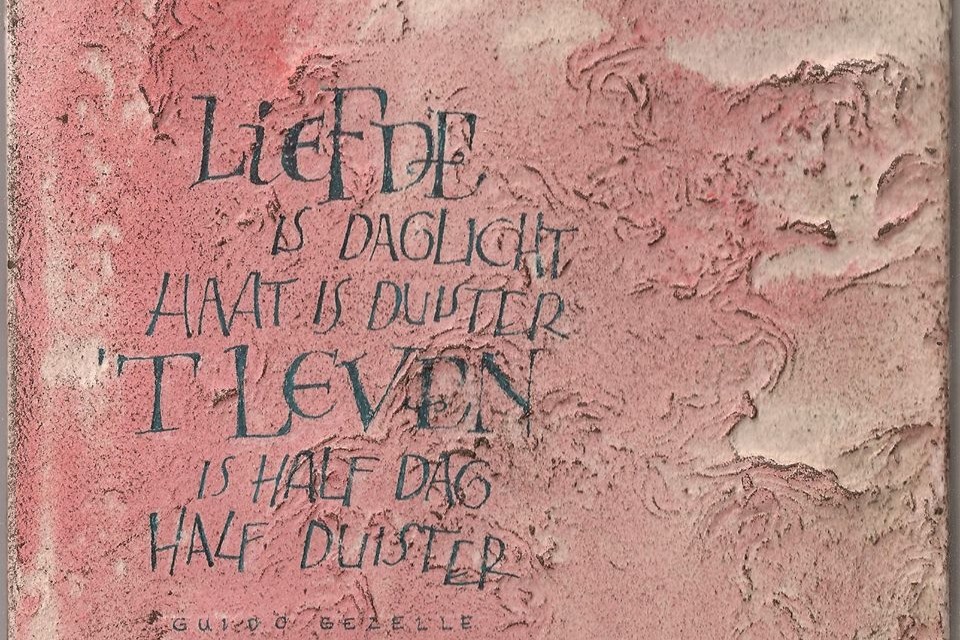 LiEFDE
IS DAGLICHT
HAAT IS DUISTER
'T LEVEN
IS HALF DAG
HALF DUISTER
GUIDO GEZELLE